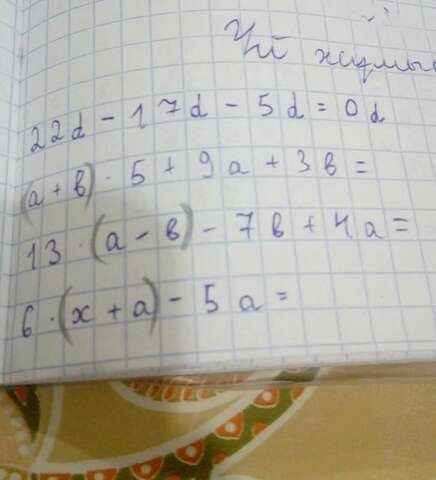 Үй жұмыс
22d - 17d - 5d = 0d
(a + b) · 5 + 9a + 3b =
13 · (a - b) - 7b + 4a =
6 · (x + a) - 5a =